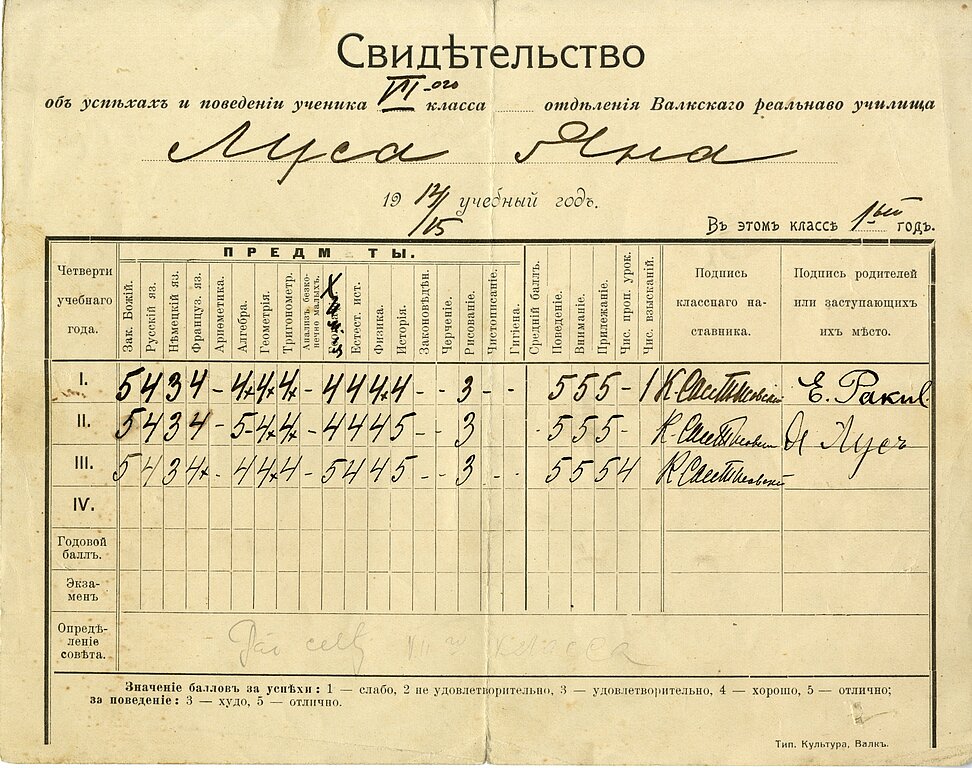 Свидѣтельство
объ успѣхахъ и поведеніи ученика VI-ого класса отдѣленія Валкскаго реальнаво училища
Луса Яна
19 14/15 учебный годъ.
Въ этомъ классѣ 1ый годъ.
Четверти учебнаго года.
ПРЕДМ ТЫ.
Зак. Божій.
Русскій яз.
Нѣмецкій яз.
Француз. яз.
Ариѳметика.
Алгебра.
Геометрія.
Тригонометр.
Анализъ безконечно малыхъ.
Естест. ист.
Физика.
Исторія.
Законовѣдѣн.
Черченіе.
Рисованіе.
Чистописаніе.
Гигіена.
Средній баллъ.
Поведеніе.
Вниманіе.
Прилежаніе.
Чис. проп. урок.
Чис. взысканій.
Подпись класснаго наставника.
Подпись родителей или заступающихъ ихъ мѣсто.
I. 5 4 3 4 - 4+ 4+ 4+ - 4 4 4+ 4 - - 3 - - 5 5 5 - 1
II. 5 4 3 4 - 5- 4+ 4+ - 4 4 4 5 - - 3 - 5 5 5 - Я Лусъ
III. 5 4 3 4+ - 4+ 4+ 4 - 5 4 4 5 - - 3 - - 5 5 5 4
IV.
Годовой баллъ.
Экзаменъ
Опредѣленіе совѣта. класса
Значеніе балловъ за успѣхи: 1 — слабо, 2 не удовлетворительно, 3 — удовлетворительно, 4 — хорошо, 5 — отлично;
за поведеніе: 3 — худо, 5 — отлично.
Тип. Культура, Валкъ.